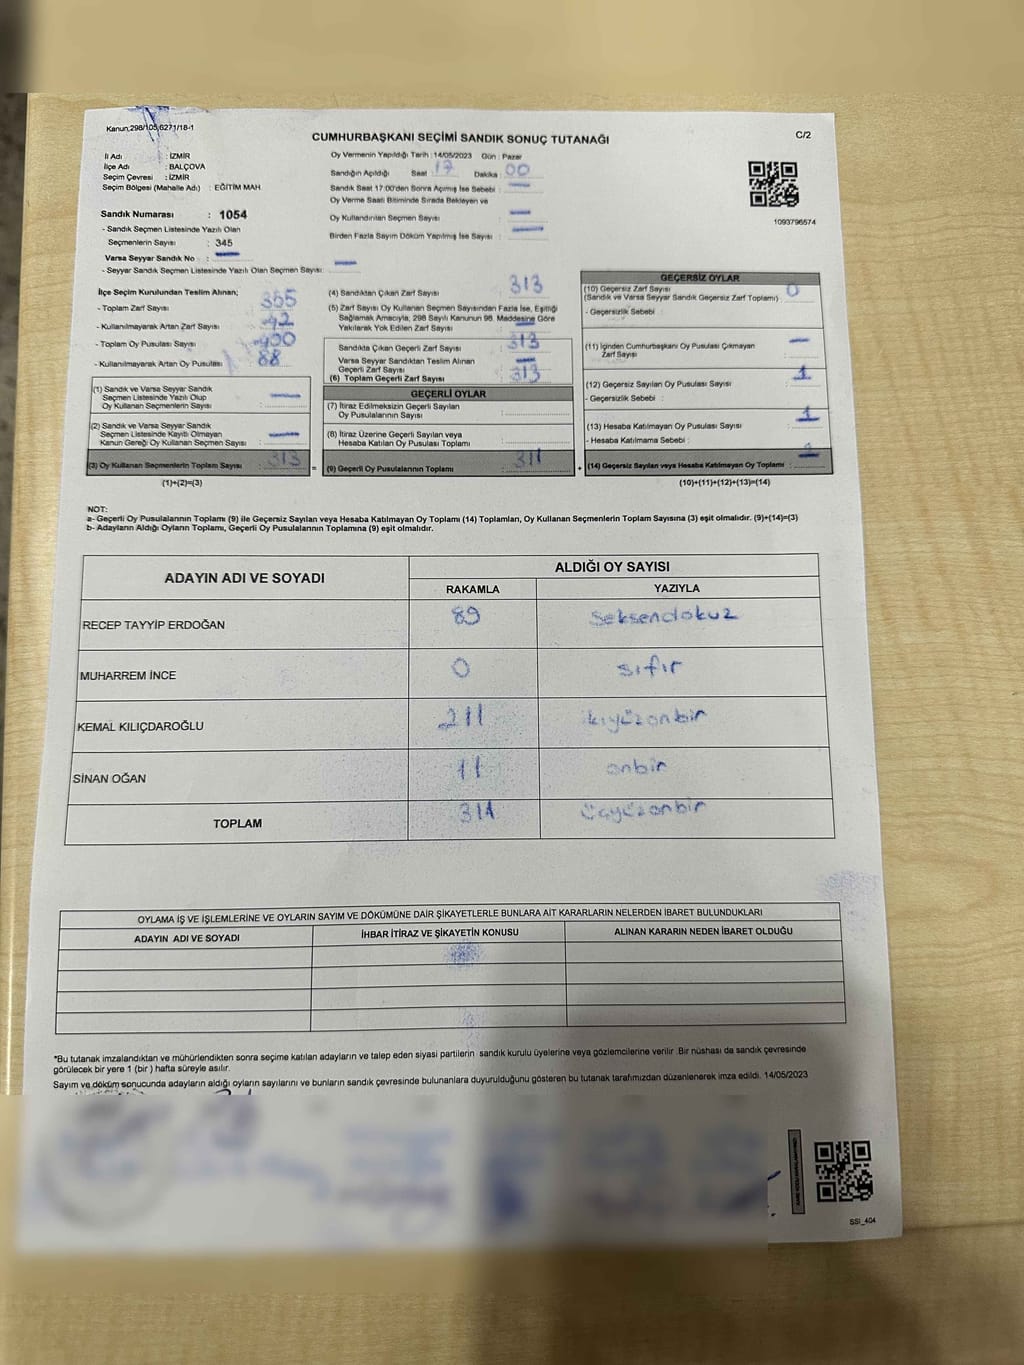 Kanun,298/105,6271/18-1
C/2
CUMHURBAŞKANI SEÇİMİ SANDIK SONUÇ TUTANAĞI
İl Adı : İZMİR
İlçe Adı : BALÇOVA
Seçim Çevresi : İZMİR
Seçim Bölgesi (Mahalle Adı) : EĞİTİM MAH.
Sandık Numarası : 1054
- Sandık Seçmen Listesinde Yazılı Olan
Seçmenlerin Sayısı : 345
Varsa Seyyar Sandık No :
- Seyyar Sandık Seçmen Listesinde Yazılı Olan Seçmen Sayısı:
Oy Vermenin Yapıldığı Tarih : 14/05/2023 Gün : Pazar
Sandığın Açıldığı Saat : 17 Dakika : 00
Sandık Saat 17:00'den Sonra Açılmış İse Sebebi :
Oy Verme Saati Bitiminde Sırada Bekleyen ve
Oy Kullandırılan Seçmen Sayısı :
Birden Fazla Sayım Döküm Yapılmış İse Sayısı :
1093796574
İlçe Seçim Kurulundan Teslim Alınan;
- Toplam Zarf Sayısı : 355
- Kullanılmayarak Artan Zarf Sayısı : 42
- Toplam Oy Pusulası Sayısı : 400
- Kullanılmayarak Artan Oy Pusulası : 88
(1) Sandık ve Varsa Seyyar Sandık
Seçmen Listesinde Yazılı Olup
Oy Kullanan Seçmenlerin Sayısı :
(2) Sandık ve Varsa Seyyar Sandık
Seçmen Listesinde Kayıtlı Olmayan
Kanun Gereği Oy Kullanan Seçmen Sayısı :
(3) Oy Kullanan Seçmenlerin Toplam Sayısı : 313
(1)+(2)=(3)
(4) Sandıktan Çıkan Zarf Sayısı : 313
(5) Zarf Sayısı Oy Kullanan Seçmen Sayısından Fazla İse, Eşitliği
Sağlamak Amacıyla, 298 Sayılı Kanunun 98. Maddesine Göre
Yakılarak Yok Edilen Zarf Sayısı :
Sandıkta Çıkan Geçerli Zarf Sayısı : 313
Varsa Seyyar Sandıktan Teslim Alınan
Geçerli Zarf Sayısı :
(6) Toplam Geçerli Zarf Sayısı : 313
GEÇERLİ OYLAR
(7) İtiraz Edilmeksizin Geçerli Sayılan
Oy Pusulalarının Sayısı :
(8) İtiraz Üzerine Geçerli Sayılan veya
Hesaba Katılan Oy Pusulası Sayısı :
= (9) Geçerli Oy Pusulalarının Toplamı : 311 +
GEÇERSİZ OYLAR
(10) Geçersiz Zarf Sayısı : 0
(Sandık ve Varsa Seyyar Sandık Geçersiz Zarf Toplamı)
- Geçersizlik Sebebi :
(11) İçinden Cumhurbaşkanı Oy Pusulası Çıkmayan
Zarf Sayısı :
(12) Geçersiz Sayılan Oy Pusulası Sayısı : 1
- Geçersizlik Sebebi :
(13) Hesaba Katılmayan Oy Pusulası Sayısı : 1
- Hesaba Katılmama Sebebi :
(14) Geçersiz Sayılan veya Hesaba Katılmayan Oy Toplamı :
(10)+(11)+(12)+(13)=(14)
NOT:
a- Geçerli Oy Pusulalarının Toplamı (9) ile Geçersiz Sayılan veya Hesaba Katılmayan Oy Toplamı (14) Toplamları, Oy Kullanan Seçmenlerin Toplam Sayısına (3) eşit olmalıdır. (9)+(14)=(3)
b- Adayların Aldığı Oyların Toplamı, Geçerli Oy Pusulalarının Toplamına (9) eşit olmalıdır.
ADAYIN ADI VE SOYADI
ALDIĞI OY SAYISI
RAKAMLA YAZIYLA
RECEP TAYYİP ERDOĞAN 89 Seksendokuz
MUHARREM İNCE 0 sıfır
KEMAL KILIÇDAROĞLU 211 ikiyüzonbir
SİNAN OĞAN 11 onbir
TOPLAM 311 üçyüzonbir
OYLAMA İŞ VE İŞLEMLERİNE VE OYLARIN SAYIM VE DÖKÜMÜNE DAİR ŞİKAYETLERLE BUNLARA AİT KARARLARIN NELERDEN İBARET BULUNDUKLARI
ADAYIN ADI VE SOYADI İHBAR İTİRAZ VE ŞİKAYETİN KONUSU ALINAN KARARIN NEDEN İBARET OLDUĞU
*Bu tutanak imzalandıktan ve mühürlendikten sonra seçime katılan adayların ve talep eden siyasi partilerin sandık kurulu üyelerine veya gözlemcilerine verilir. Bir nüshası da sandık çevresinde
görülecek bir yere 1 (bir) hafta süreyle asılır.
Sayım ve döküm sonucunda adayların aldığı oyların sayılarını ve bunların sandık çevresinde bulunanlara duyurulduğunu gösteren bu tutanak tarafımızdan düzenlenerek imza edildi. 14/05/2023
SSI_404